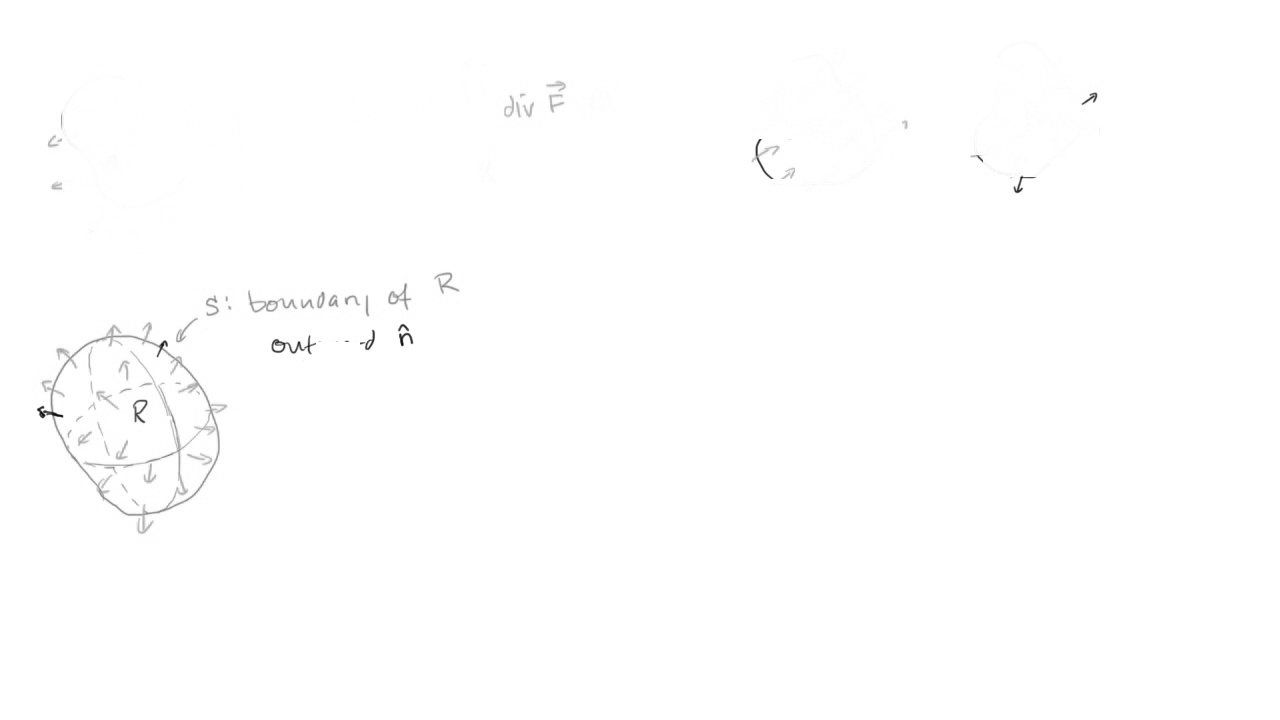 div F⃗
S: boundary of R
n̂
R